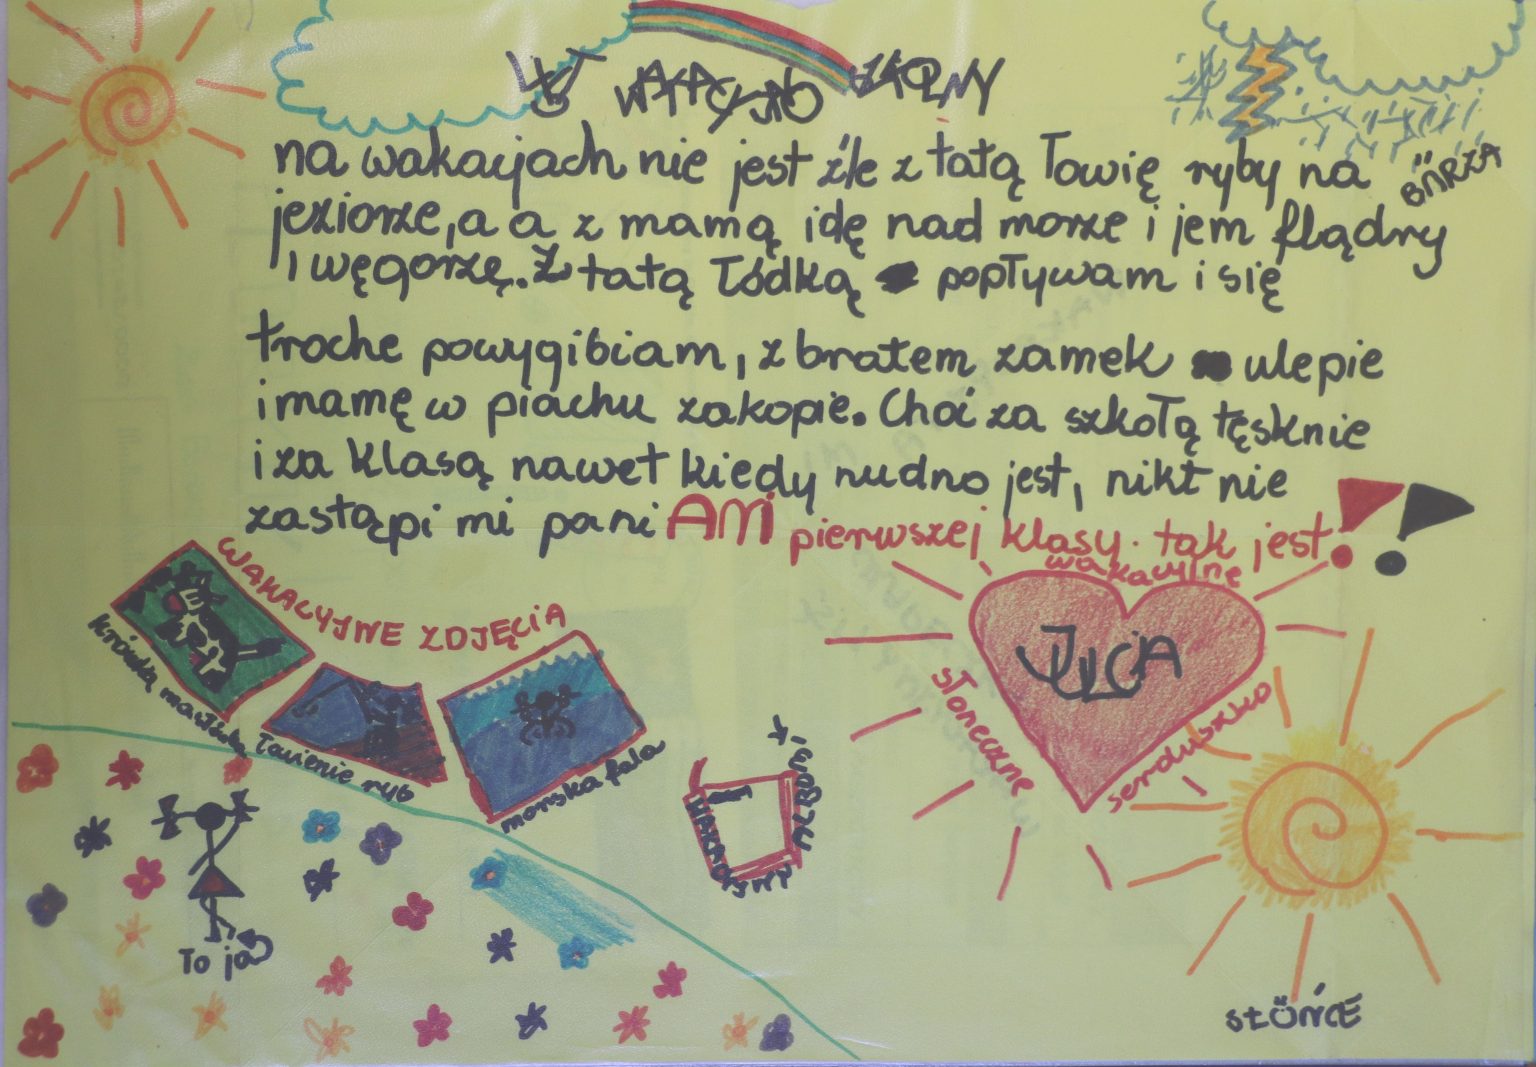 LIST WAKACYJNO
na wakacjach nie jest źle z tatą łowię ryby na
jeziorze, a a z mamą idę nad morze i jem flądry
i węgorzę. Z tatą łódką popływam i się
troche powygibiam, z bratem zamek ulepie
i mamę w piachu zakopie. Choć za szkołą tęsknie
i za klasą nawet kiedy nudno jest, nikt nie
zastąpi mi pani AMI pierwszej klasy. tak jest!!
BURZA
WAKACYJNE ZDJĘCIA
łowienie ryb
morska fala
wakacyjne
JULCIA
słoneczne
serduszko
To ja
SŁOŃCE